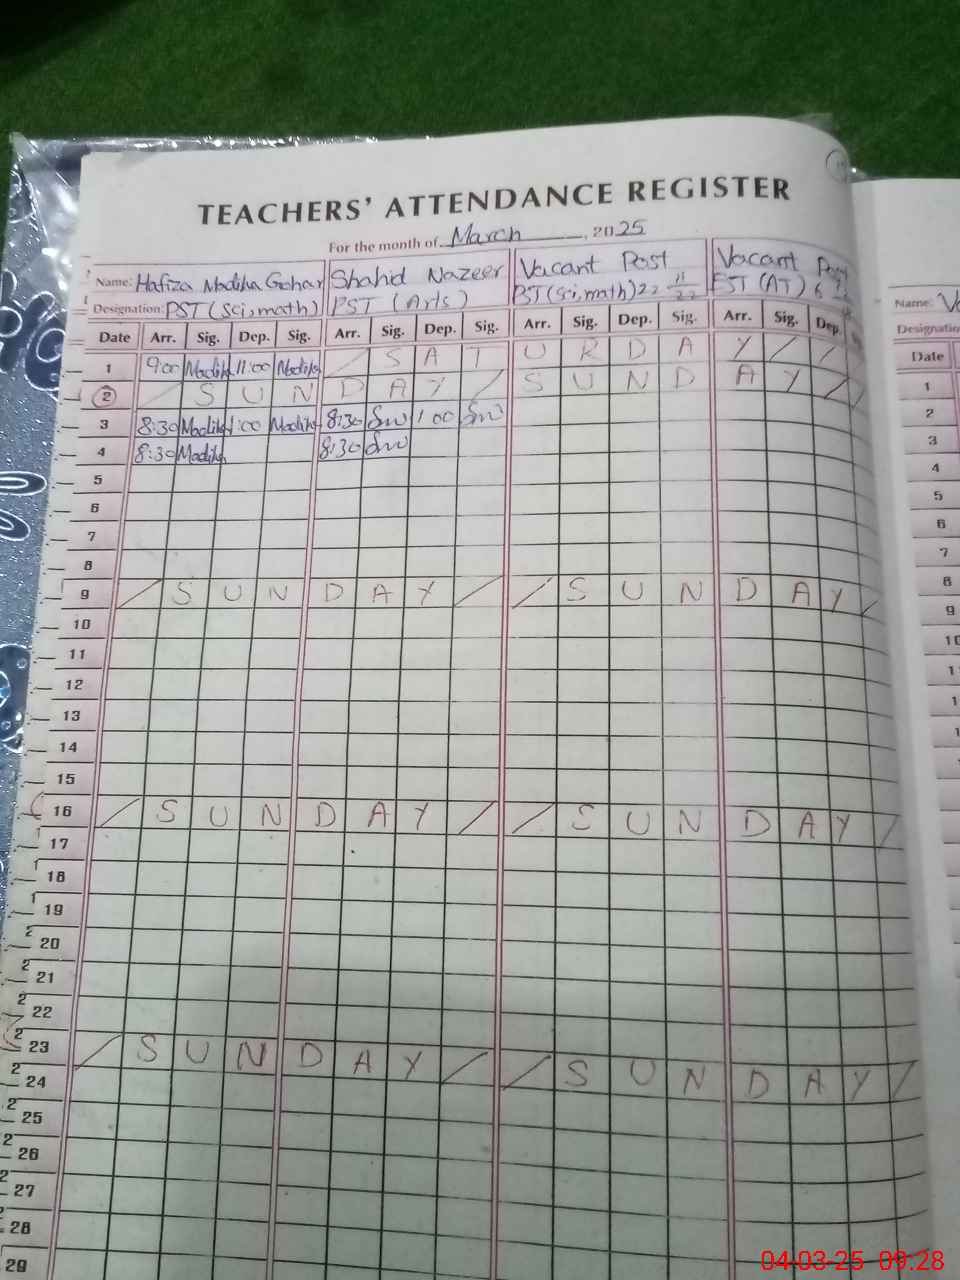 TEACHERS' ATTENDANCE REGISTER
For the month of March, 2025
Name: Hafiza Madiha Gohar Shahid Nazeer Vacant Post Vacant Post Name:
Designation: PST (Sci,math) PST (Arts) PST (Sci,math) 22 11/22 EST (AT) 6 Designation
Date Arr. Sig. Dep. Sig. Arr. Sig. Dep. Sig. Arr. Sig. Dep. Sig. Arr. Sig. Dep. Date
1 9:00 Madiha 11:00 Madiha / S A T U R D A Y / / 1
2 / S U N D A Y / S U N D A Y / 2
3 8:30 Madiha 1:00 Madiha 8:30 1:00 3
4 8:30 Madiha 8:30 4
5 5
6 6
7 7
8 8
9 / S U N D A Y / / S U N D A Y / 9
10 10
11
12
13
14
15
16 / S U N D A Y / / S U N D A Y /
17
18
19
20
21
22
23 / S U N D A Y / / S U N D A Y /
24
25
26
27
28
29
04-03-25 09:28